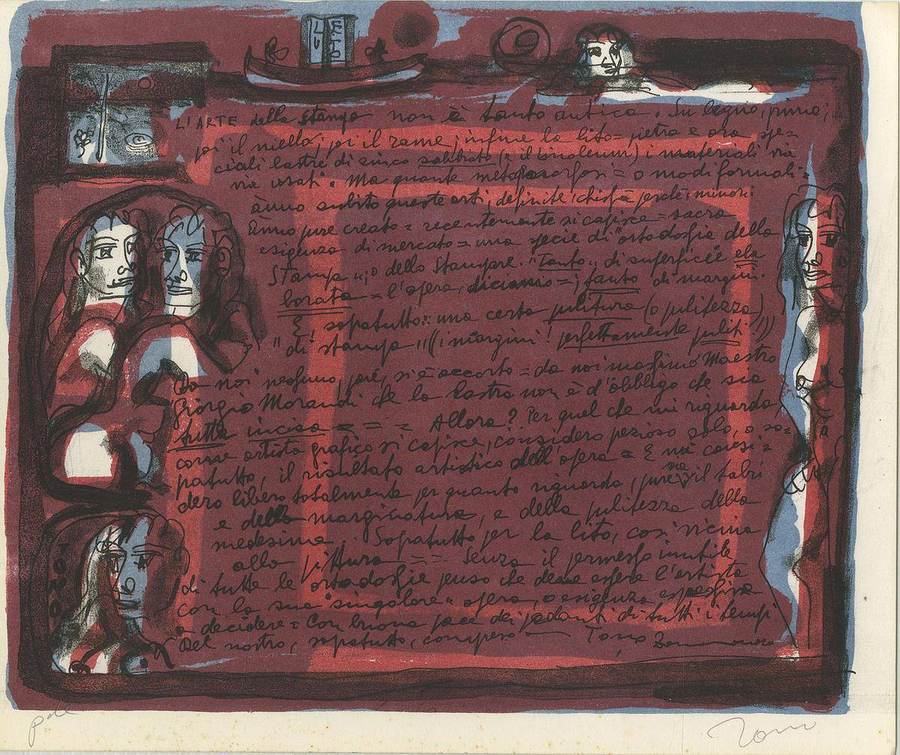 LU
L'ARTE della stampa non è tanto antica. Su legno, prima;
poi il niello; poi il rame; infine la lito = pietra e ora spe=
ciali lastre di zinco (o il linoleum) i materiali via
via usati. Ma quante metamorfosi = o modi formali =
ànno subito queste arti, definite chissà perchè: minori
Ànno pure creato = recentemente si capisce = sacra
esigenza di mercato = una specie di "ortodossia della
Stampa"; o dello Stampare. "Tanto" di superficie ela
borata = l'opera, diciamo =; tanto di margini.
E, sopatutto: una certa pulitura (o pulitezza)
"di stampa" ((i margini! perfettamente puliti!))
Da noi nessuno, però, si è accorto = da noi massimo Maestro
Giorgio Morandi che la lastra non è d'obbligo che sia
tutta incisa = = = Allora? Per quel che mi riguarda
come artista grafico si capisce, considero solo, o so=
patutto, il risultato artistico dell'opera = E mi consi=
dero libero totalmente per quanto riguarda, sia pure, il
e della marginatura, e della pulitezza della
medesima. Sopatutto per la lito, così vicina
alla pittura == Senza il permesso inutile
di tutte le ortodossie penso che deve essere l'artista
con la sua "singolare" opera o esigenza espressiva
a decidere = Con buona pace dei pedanti di tutti i tempi
Del nostro, sopatutto, compreso — Tono
Tono